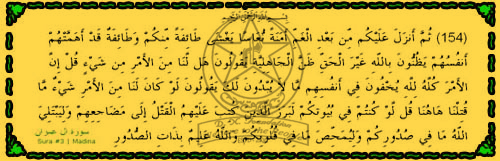 بسم الله الرحمن الرحيم
(154) ثُمَّ أَنزَلَ عَلَيْكُم مِّن بَعْدِ الْغَمِّ أَمَنَةً نُّعَاسًا يَغْشَى طَائِفَةً مِّنكُمْ وَطَائِفَةٌ قَدْ أَهَمَّتْهُمْ
أَنفُسُهُمْ يَظُنُّونَ بِاللّهِ غَيْرَ الْحَقِّ ظَنَّ الْجَاهِلِيَّةِ يَقُولُونَ هَل لَّنَا مِنَ الأَمْرِ مِن شَيْءٍ قُلْ إِنَّ
الأَمْرَ كُلَّهُ لِلَّهِ يُخْفُونَ فِي أَنفُسِهِم مَّا لاَ يُبْدُونَ لَكَ يَقُولُونَ لَوْ كَانَ لَنَا مِنَ الأَمْرِ شَيْءٌ مَّا
قُتِلْنَا هَاهُنَا قُل لَّوْ كُنتُمْ فِي بُيُوتِكُمْ لَبَرَزَ الَّذِينَ كُتِبَ عَلَيْهِمُ الْقَتْلُ إِلَى مَضَاجِعِهِمْ وَلِيَبْتَلِيَ
اللّهُ مَا فِي صُدُورِكُمْ وَلِيُمَحِّصَ مَا فِي قُلُوبِكُمْ وَاللّهُ عَلِيمٌ بِذَاتِ الصُّدُورِ
سورة آل عمران
Sura #3 | Madina